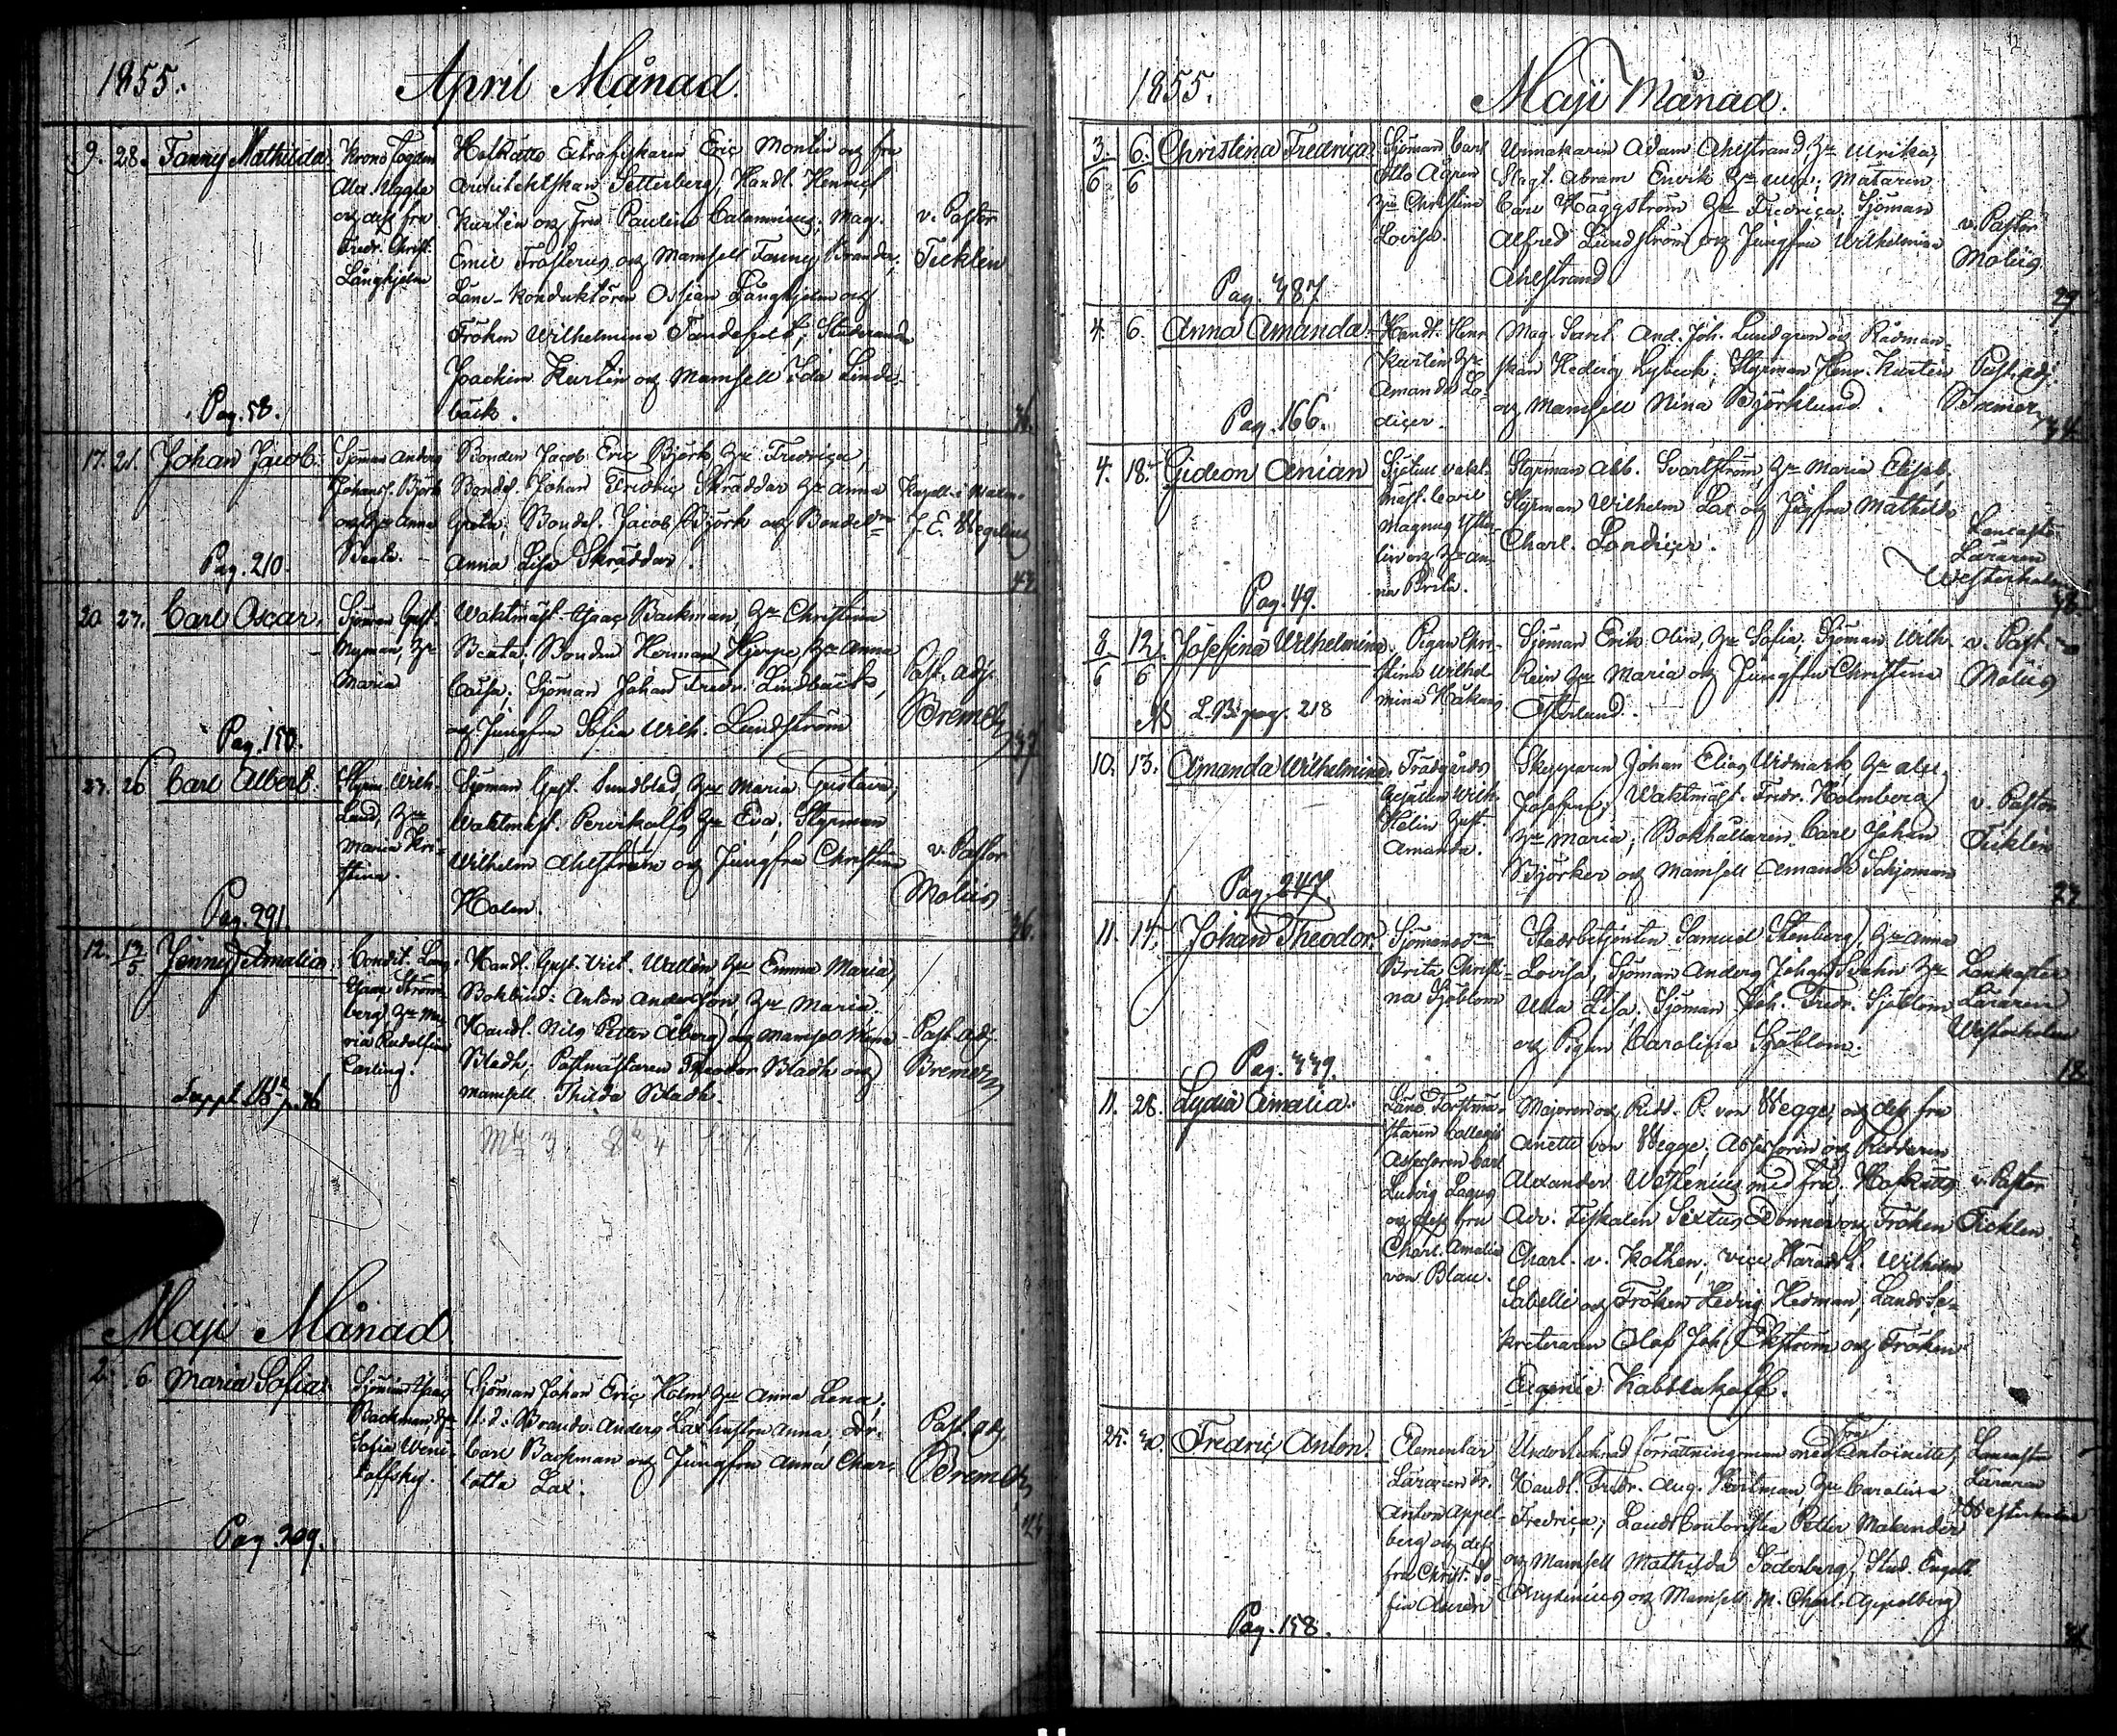 1855. April Månad.
9. 28. Fanny Mathilda.
Krono Fogden
Alex. Uggla
och dess fru
Fredr. Christ.
Långhjelm
Hofrätts Extrafiskalen Eric Montin och fru
Architektskan Setterberg, Handl. Henric
Kurtén och Fru Paulina Calamnius; Mag.
Emil Frosterus och Mamsell Fanny Brander;
Läne-Konduktören Ossian Långhjelm och
Fröken Wilhelmina Tandefelt, Studerande
Joachim Kurtén och Mamsell Ida Linde-
bäck.
v. Pastor
Ticklén
Pag. 58.
17. 21. Johan Jacob.
Sjöman Anders
Johans. Björk
och Hu Anna
Beata.
Bonden Jacob Eric Björk, Hu Fredrica,
Bondes. Johan Fredric Skräddar Hu Anna
Greta; Bondes. Jacob Björk och Bonded.
Anna Lisa Skräddar.
Kapell. i
J. E. Wegelius
Pag. 210.
43
20. 23. Carl Oscar.
Sjöman Gust.
Nyman, Hu
Maria
Waktmäst. Isaac Backman, Hu Christina
Beata; Bonden Herman Hjerpe, Hu Anna
Caisa; Sjöman Johan Fredr. Lindbäck,
och Jungfru Sofia Wilh. Lundström
Past. adj.
Bremer
Pag. 150.
37
23. 26. Carl Albert.
Styrm. Wilh.
Lund, Hu
Maria Kri-
stina.
Sjöman Gust. Sundblad, Hu Maria Gustava;
Waktmäst. Hu Eva; Styrman
Wilhelm Ahlström och Jungfru Christina
Holm.
v. Pastor
Molius
Pag. 291.
26.
12. 13/5 Jenny Amalia
Condit.
Isaac Ström-
berg, Hu Ma-
ria Rudolfina
Carling.
Handl. Gust. Vict. Wallén Hu Emma Maria,
Bokbind. Anton Anderson, Hu Maria.
Handl. Nils Petter Åberg och Mamsel Mina
Bladh; Postmästaren Theodor Bladh och
Mamsell Thilda Bladh.
Past. adj.
Bremer
Maji Månad
2. 6. Maria Sofia.
Sjöman Isac
Backman, Hu
Sofia
Sjöman Johan Eric Holm, Hu Anna Lena;
f. d. Brandv. Anders Lax hustru Anna, Dr.
Carl Backman och Jungfru Anna Char-
lotta Lax.
Past. adj.
Bremer
Pag. 209.
1855. Maji Månad.
3/6 6/6 Christina Fredrica
Sjöman Carl
Otto Ågren
Hu Christina
Lovisa.
Urmakaren Adam Ahlstrand, Hu Ulrika;
Abram Envik Hu Ulr.; Mätaren
Carl Häggström Hu Fredrica; Sjöman
Alfred Lundström och Jungfru Wilhelmina
Ahlstrand
v. Pastor
Molius
Pag. 387
29
4. 6. Anna Amanda.
Handl. Henr.
Kurtén Hu
Amanda Lo-
dijer.
Mag. And. Joh. Lundgren och Rådman-
skan Hedvig Lybeck; Styrman Henr. Kurtén
och Mamsell Nina Björklund.
Past. adj.
Bremer
Pag. 166.
34
4. 18. Gideon Anian
Magnus
och Hu An-
na Brita.
Styrman Alb. Svartström, Hu Maria Elisab.
Styrman Wilhelm Lax och Jungfru Mathilda
Charl. Londicer.
Lancaster
Läraren
Westerholm
Pag. 49.
38.
8/6 12/6 Josefina Wilhelmina
Pigan Chri-
stina Wilhel
mina Håkans
Sjöman Erik Olin, Hu Sofia; Sjöman Wilh.
Rein Hu Maria och Jungfru Christina
Österlund.
v. Past.
Molius
L. B. pag. 218
10. 13. Amanda Wilhelmina
Trädgårds
Gesällen Wilh.
Helin Hust.
Amanda.
Skepparen Johan Elias Widmark, Hu Alb.
Josefina; Waktmäst. Fredr. Holmberg
Hu Maria; Bokhållaren Carl Johan
Björker och Mamsell Amanda Sohjoman
v. Pastor
Ticklén
Pag. 247.
23
11. 14. Johan Theodor.
Brita Christi-
na Sjöblom
Stadsbetjenten Samuel Stenberg, Hu Anna
Lovisa, Sjöman Anders Johan Svahn Hu
Ulla Lisa, Sjöman Joh. Fredr. Sjöblom
och Pigan Carolina Sjöblom.
Lankaster
Läraren
Westerholm
Pag. 339.
18
11. 28. Lydia Amalia.
Läns Forstmä-
staren Collegii
Assessoren Carl
Ludvig Lagus
och dess fru
Charl. Amalia
von Blau.
Majoren och Ridd. P. von Wegge, och dess fru
Anette von Wegge; Assessoren och Riddaren
Alexander Wasenius med fru; Hofrätts
Adv. Fiskalen Sixtus Donner och Fröken
Charl. v. Kothen; vice Häradsh. Wilhelm
Sabelli och Fröken Hedvig Hedman, Lands Se-
kreteraren Olof Joh. Ekström och Fröken
Eugenie Kabblukoff.
v. Pastor
Ticklén.
25. 30. Fredric Anton.
Elementar
Läraren Dr.
Anton Appel-
berg och dess
fru Christ. So-
fia Aurén
Undertecknad förrättningsman med Fru Antoinette;
Handl. Fredr. Aug. Hu Carolina
Fredrica; Lands Contoristen Petter Malander
och Mamsell Mathilda Söderberg; Stud. Engelb.
och Mamsell M. Charl. Appelberg
Lancaster
Läraren
Westerholm
Pag. 158.